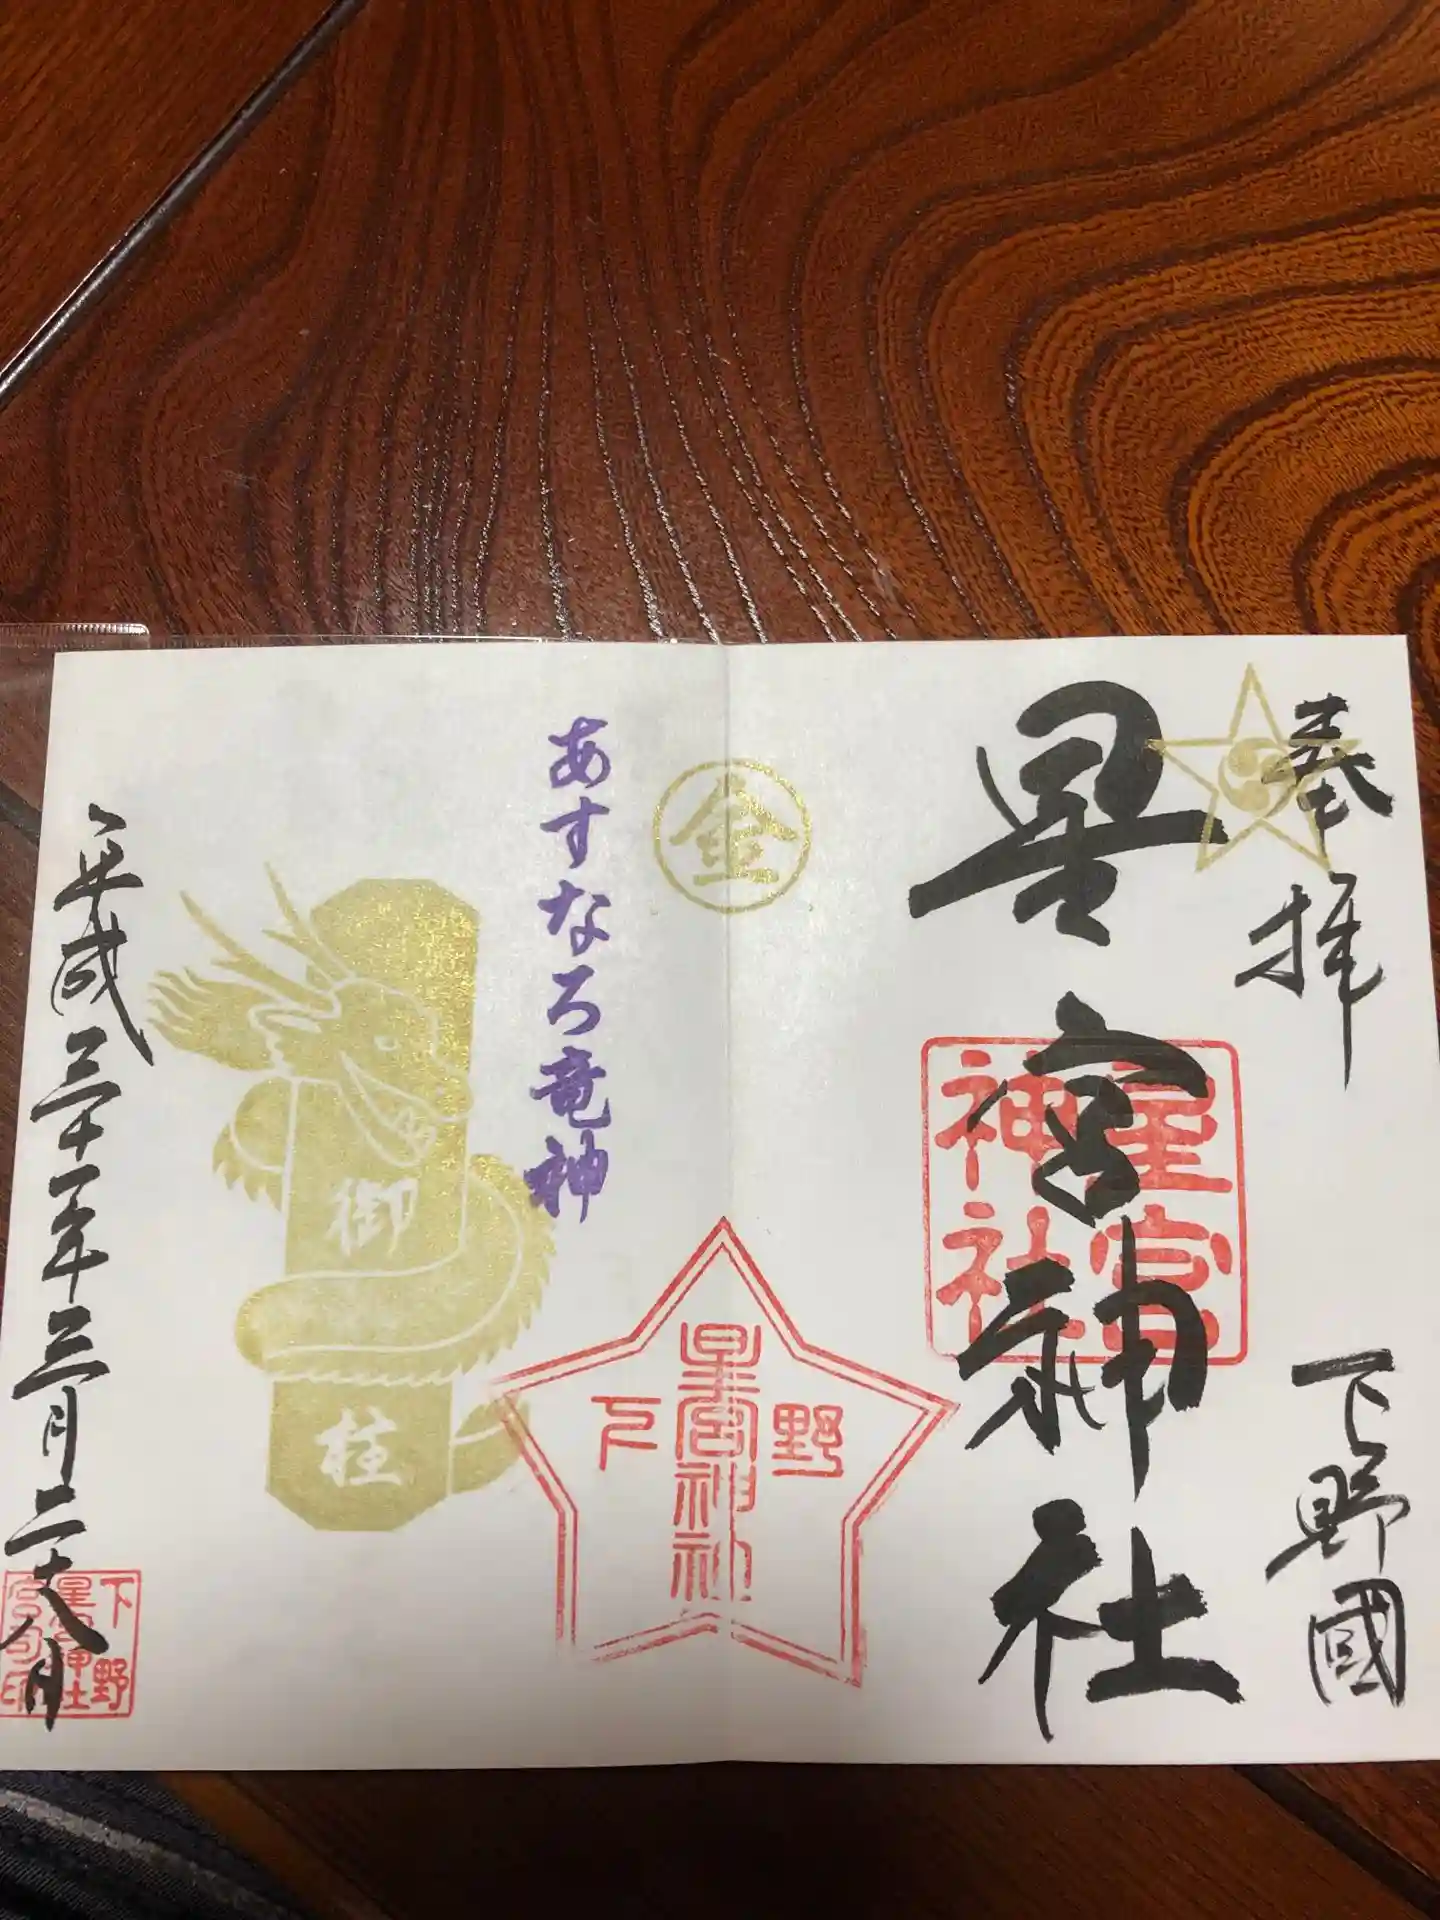 奉拝
下野國
星宮神社
星宮
神社
金
野
星宮神社
下
あすなろ竜神
御柱
平成三十一年三月二十八日
下野
星宮神社
宮司印